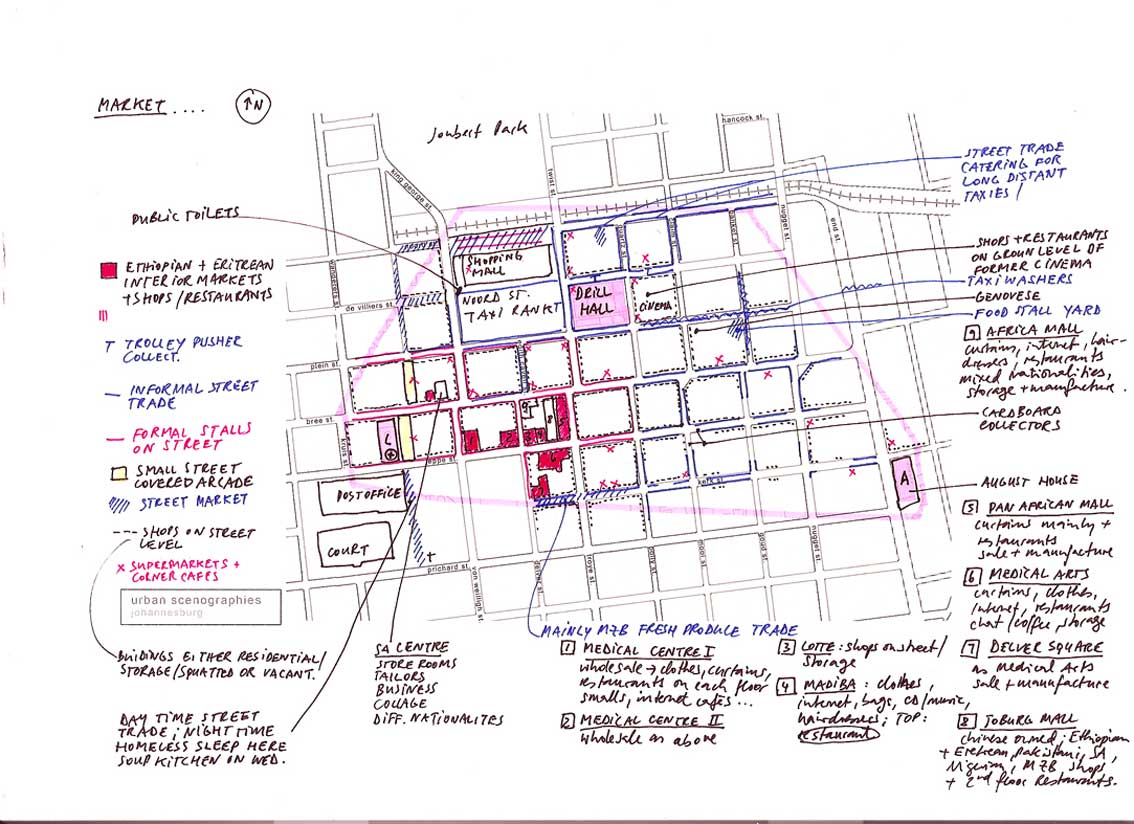 MARKET ....
↑N
Joubert Park
hancock st.
king george st.
twist st.
STREET TRADE
CATERING FOR
LONG DISTANT
TAXIES /
PUBLIC TOILETS
nugget st.
end st.
wanderers st.
SHOPPING
MALL
SHOPS + RESTAURANTS
ON GROUN LEVEL OF
FORMER CINEMA
ETHIOPIAN + ERITREAN
INTERIOR MARKETS
+ SHOPS / RESTAURANTS
NOORD ST.
TAXI RANKT
DRILL
HALL
CINEMA
TAXI WASHERS
GENOVESE
FOOD STALL YARD
de villiers st.
T TROLLEY PUSHER
COLLECT.
9 AFRICA MALL
curtains, internet, hair-
dressers, restaurants
mixed nationalities,
storage + manufacture.
plein st.
INFORMAL STREET
TRADE
FORMAL STALLS
ON STREET
bree st.
CARDBOARD
COLLECTORS
SMALL STREET
COVERED ARCADE
STREET MARKET
kruis st.
L
POST OFFICE
A
AUGUST HOUSE
SHOPS ON STREET
LEVEL
COURT
5 PAN AFRICAN MALL
curtains mainly +
restaurants
sale + manufacture
x SUPERMARKETS +
CORNER CAFES
prichard st.
von weilligh st.
delvers st.
troye st.
polly st.
mooi st.
goud st.
nugget st.
6 MEDICAL ARTS
curtains, clothes,
internet, restaurants
chat / coffee, storage
urban scenographies
johannesburg
MAINLY MZB FRESH PRODUCE TRADE
BUILDINGS EITHER RESIDENTIAL/
STORAGE/SQUATTED OR VACANT.
SA CENTRE
STORE ROOMS
TAILORS
BUSINESS
COLLAGE
DIFF. NATIONALITES
1 MEDICAL CENTRE I
wholesale → clothes, curtains,
restaurants on each floor
smalls, internet cafés ...
2 MEDICAL CENTRE II
wholesale as above
3 LOTTE : shops on street/
storage
4 MADIBA : clothes,
internet, bags, CD/music,
hairdresses; TOP:
restaurant
7 DELVER SQUARE
as medical Arts
sale + manufacture
8 JOBURG MALL
chinese owned; Ethiopian
+ Eretrean, pakistani, SA,
Nigerian, MZB shops
+ 2nd floor Restaurants.
DAY TIME STREET
TRADE; NIGHT TIME
HOMELESS SLEEP HERE
SOUP KITCHEN ON WED.